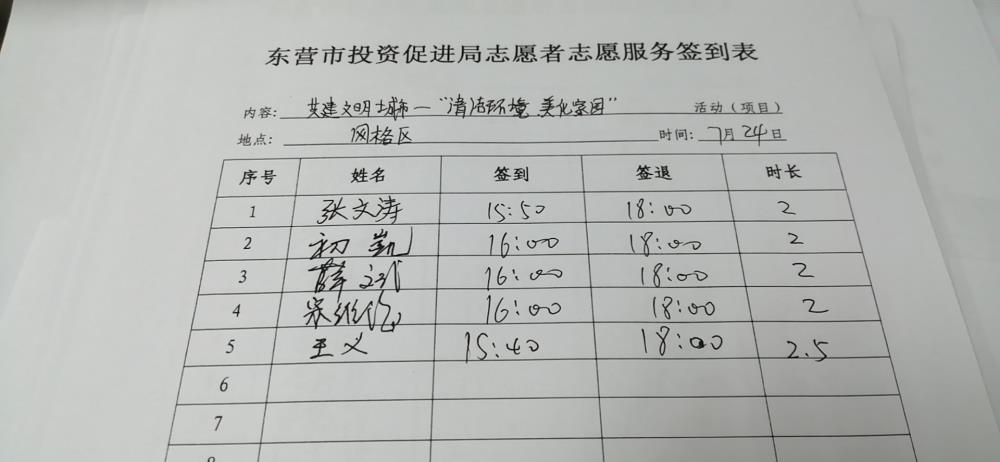 东营市投资促进局志愿者志愿服务签到表
内容： 共建文明城市—“清洁环境 美化家园” 活动（项目）
地点： 网格区 时间：7月24日
序号 姓名 签到 签退 时长
1 张文涛 15:50 18:00 2
2 初凯 16:00 18:00 2
3 薛 16:00 18:00 2
4 宋维 16:00 18:00 2
5 王义 15:40 18:00 2.5
6
7